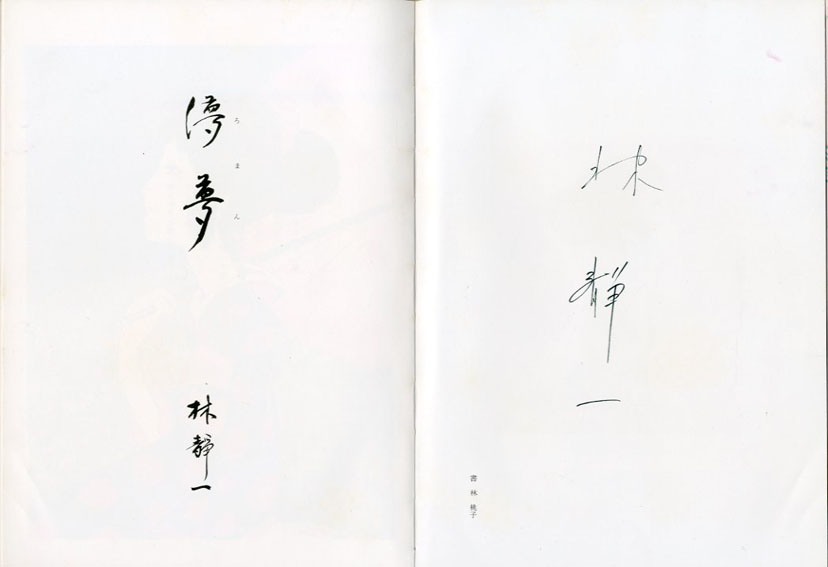 儚夢
ろまん
林静一
林静一
書 林 桃子